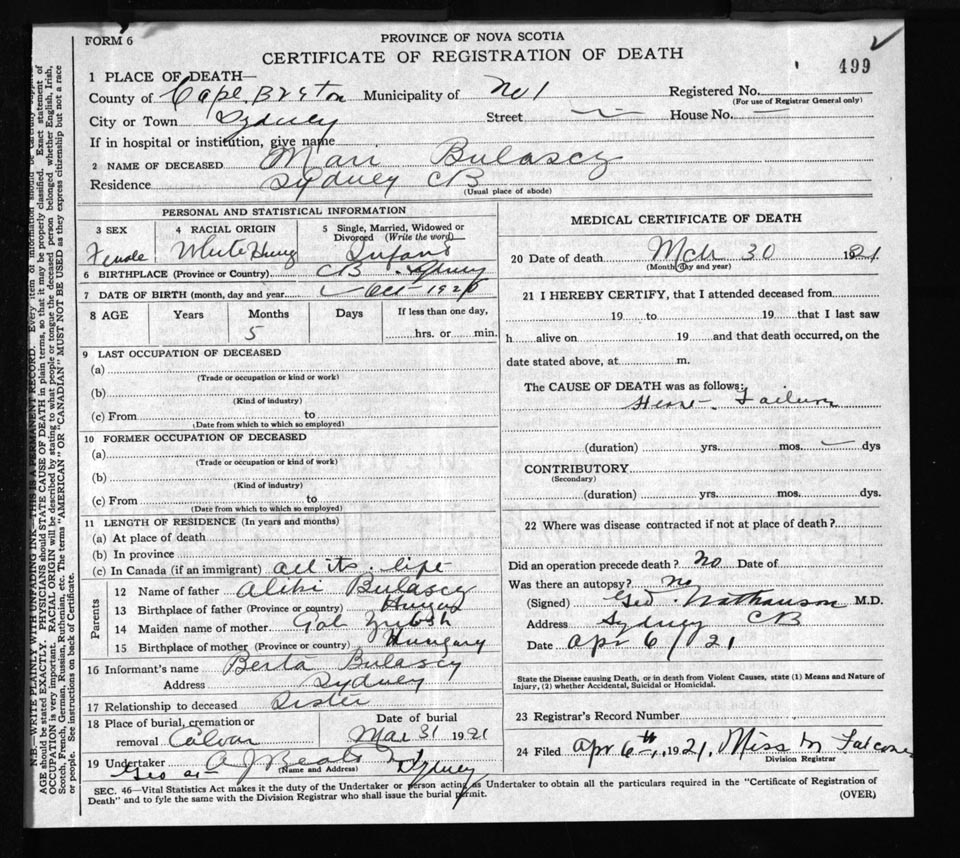 FORM 6
PROVINCE OF NOVA SCOTIA
CERTIFICATE OF REGISTRATION OF DEATH
499
1 PLACE OF DEATH—
County of Cape Breton Municipality of No 1 Registered No.
(For use of Registrar General only)
City or Town Sydney Street House No.
If in hospital or institution, give name
2 NAME OF DECEASED Mari Bulascy
Residence Sydney CB
(Usual place of abode)
PERSONAL AND STATISTICAL INFORMATION
3 SEX 4 RACIAL ORIGIN 5 Single, Married, Widowed or Divorced (Write the word)
Female White Hung Infant
6 BIRTHPLACE (Province or Country) CB. Sydney
7 DATE OF BIRTH (month, day and year) Oct 1920
8 AGE Years Months Days If less than one day,
5 hrs. or min.
9 LAST OCCUPATION OF DECEASED
(a)
(Trade or occupation or kind or work)
(b)
(Kind of industry)
(c) From to
(Date from which to which so employed)
10 FORMER OCCUPATION OF DECEASED
(a)
(Trade or occupation or kind of work)
(b)
(Kind of industry)
(c) From to
(Date from which to which so employed)
11 LENGTH OF RESIDENCE (In years and months)
(a) At place of death
(b) In province
(c) In Canada (if an immigrant) all its life
Parents
12 Name of father Bulascy
13 Birthplace of father (Province or country) Hungary
14 Maiden name of mother
15 Birthplace of mother (Province or country) Hungary
16 Informant's name Berta Bulascy
Address Sydney
17 Relationship to deceased Sister
18 Place of burial, cremation or removal Date of burial
Mar 31 1921
19 Undertaker A J Beaton Sydney
(Name and Address)
MEDICAL CERTIFICATE OF DEATH
20 Date of death Mch 30 1921
(Month, day and year)
21 I HEREBY CERTIFY, that I attended deceased from
19 to 19 that I last saw
h alive on 19 and that death occurred, on the
date stated above, at m.
The CAUSE OF DEATH was as follows:
Heart Failure
(duration) yrs. mos. dys
CONTRIBUTORY
(Secondary)
(duration) yrs. mos. dys.
22 Where was disease contracted if not at place of death?
Did an operation precede death? No Date of
Was there an autopsy? No
(Signed) Geo. Nathanson M.D.
Address Sydney CB
Date Apr 6/21
State the Disease causing Death, or in death from Violent Causes, state (1) Means and Nature of
Injury, (2) whether Accidental, Suicidal or Homicidal.
23 Registrar's Record Number
24 Filed Apr 6th, 1921, Miss M
Division Registrar
SEC. 46—Vital Statistics Act makes it the duty of the Undertaker or person acting as Undertaker to obtain all the particulars required in the "Certificate of Registration of
Death" and to fyle the same with the Division Registrar who shall issue the burial permit. (OVER)
N.B.—WRITE PLAINLY WITH UNFADING INK—THIS IS A PERMANENT RECORD. Every item of information should be carefully supplied.
AGE should be stated EXACTLY. PHYSICIANS should STATE CAUSE OF DEATH in plain terms, so that it may be properly classified. Exact statement of
OCCUPATION is very important. RACIAL ORIGIN will be described by stating to what people or tongue the deceased person belonged whether English, Irish,
Scotch, French, German, Russian, Ruthenian, etc. The terms "AMERICAN" OR "CANADIAN" MUST NOT BE USED as they express citizenship but not a race
or people. See instructions on back of Certificate.